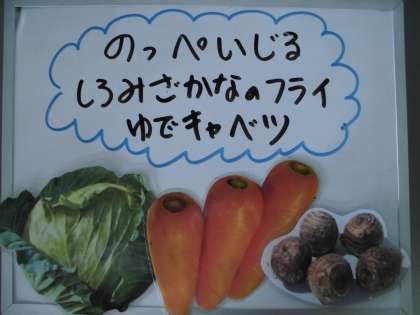 のっぺいじる
しろみざかなのフライ
ゆでキャベツ